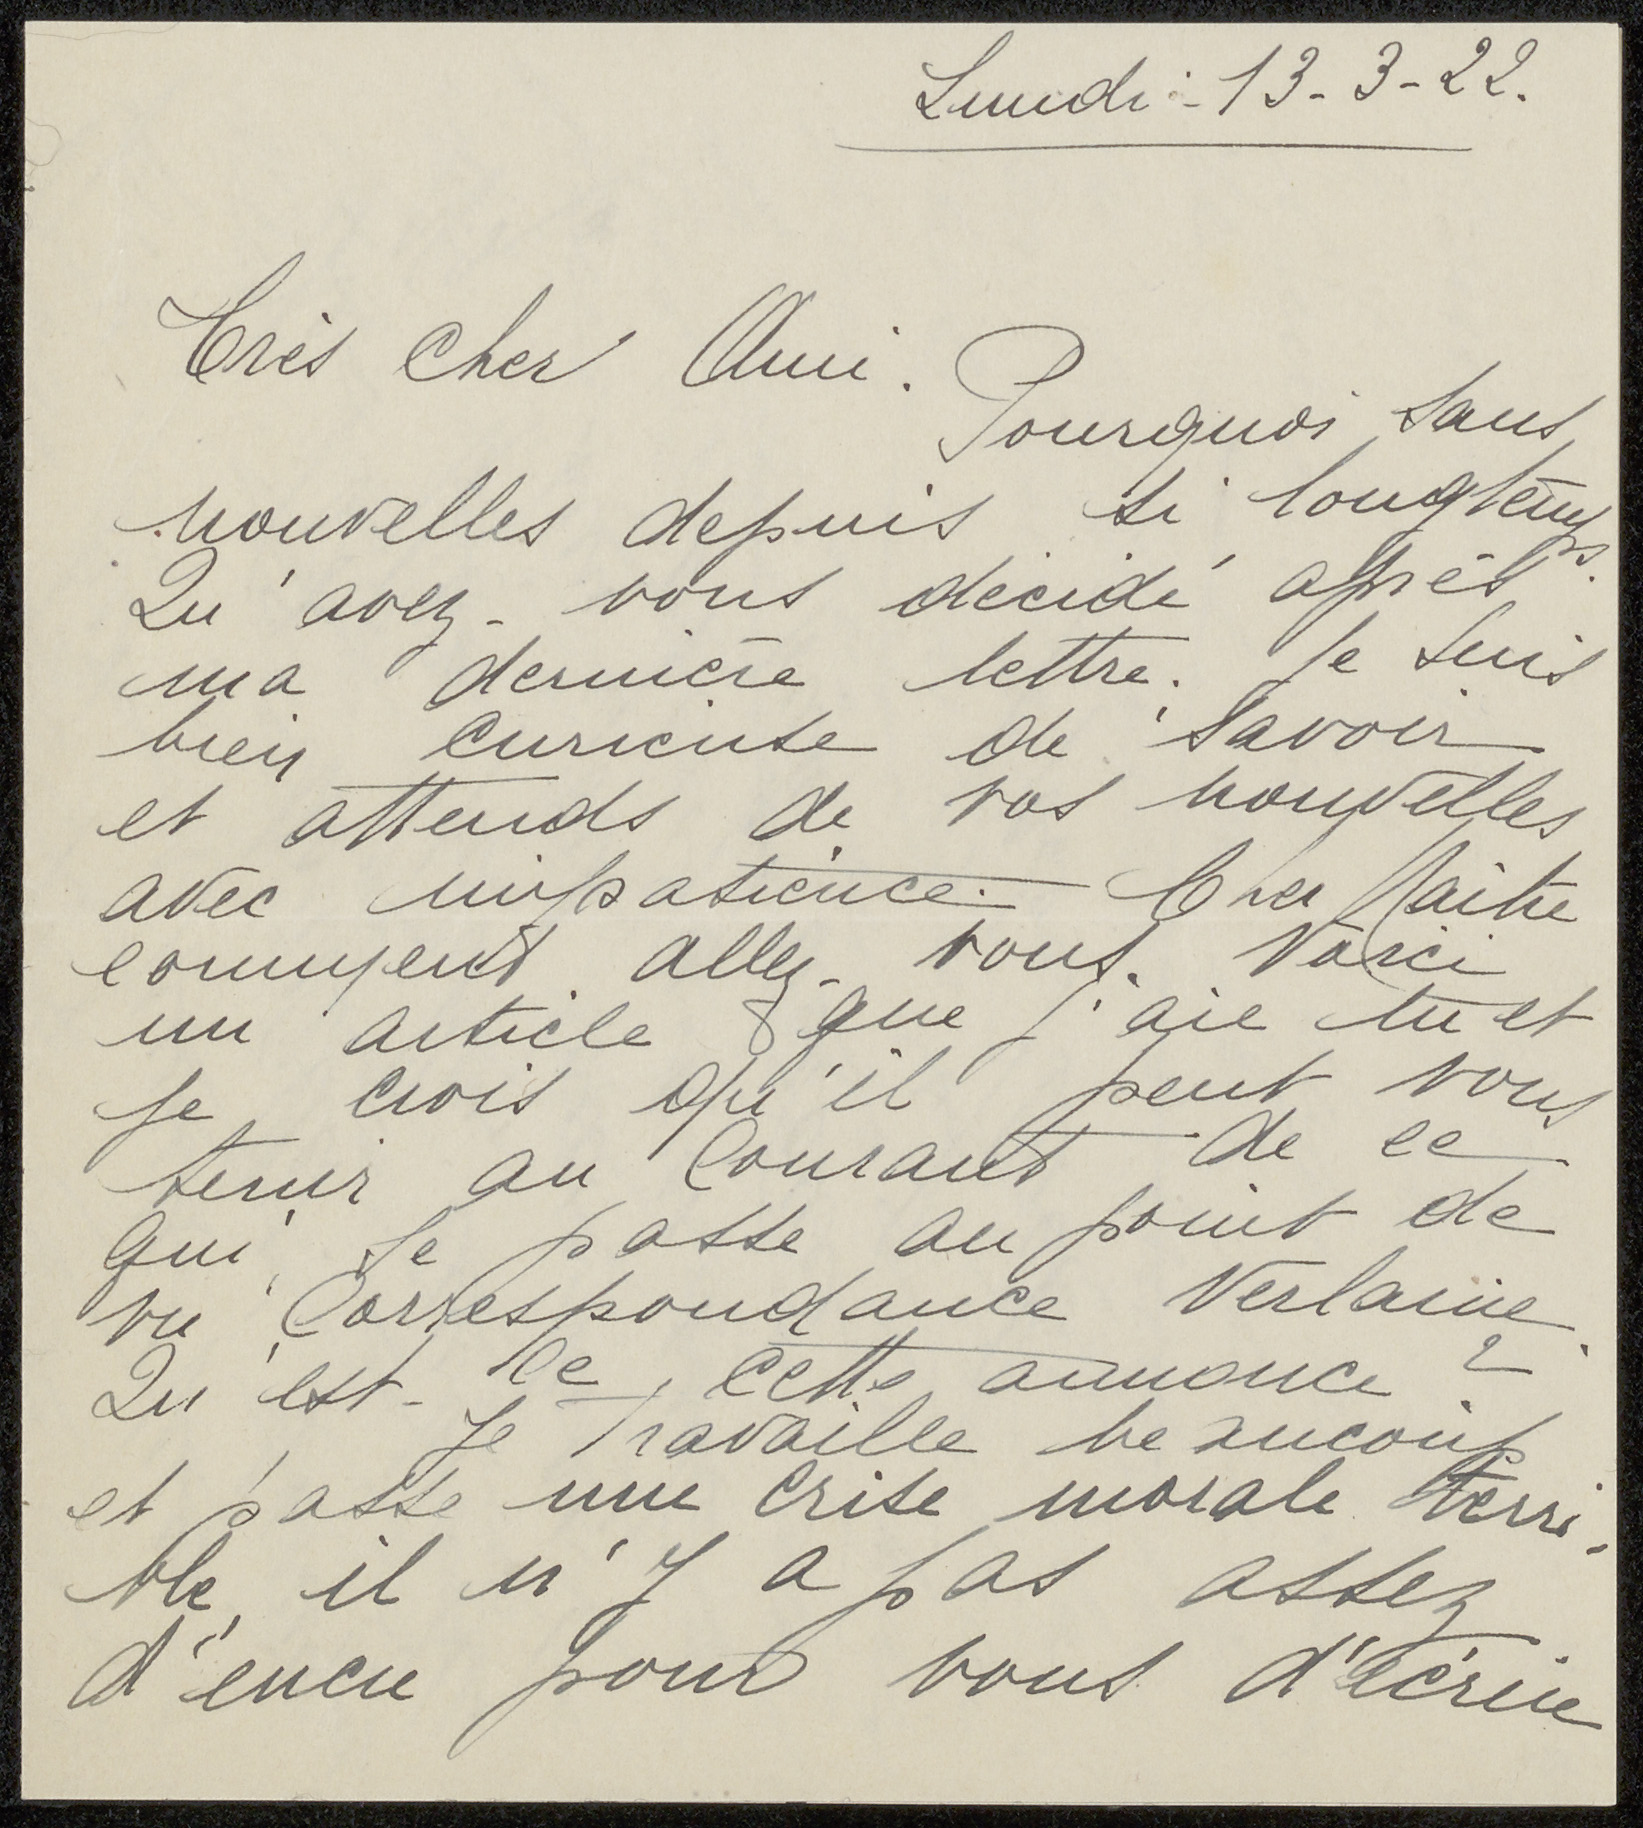 Lundi - 13 - 3 - 22.
Très Cher Ami.
Pourquoi sans
nouvelles depuis si longtemps.
Qu'avez-vous décidé après
ma dernière lettre. Je suis
bien curieuse de savoir
et attends de vos nouvelles
avec impatience. Cher Maître
comment allez-vous. Voici
un article que j'aie lu et
je crois qu'il peut vous
tenir au courant de ce
qui se passe au point de
vu Correspondance Verlaine.
Qu'est-ce cette annonce ?
Je travaille beaucoup
et passe une crise morale terri-
ble, il n'y a pas assez
d'encre pour vous d'écrire